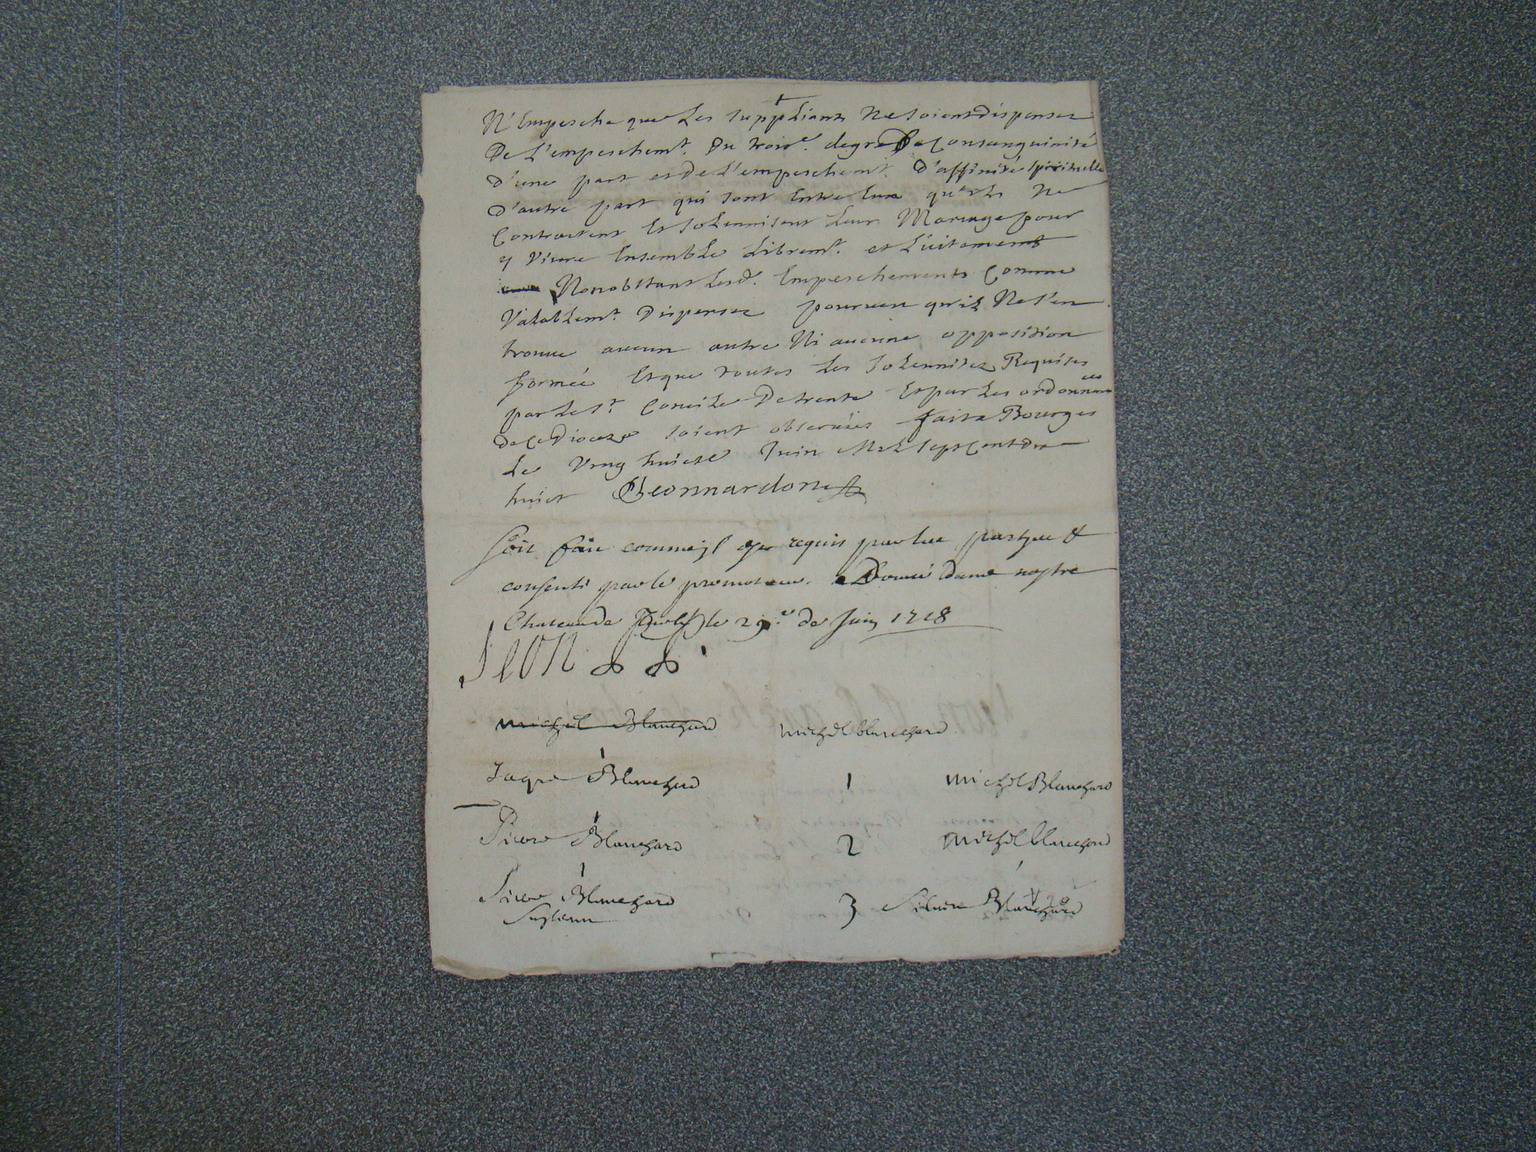 N'Empesche que Les suppliants Ne soient dispensez
De L'empeschemt. Du trois.e degré De Consanguinité
d'une part et de L'empeschemt. d'affinité spirituelle
d'autre part qui sont Entre Eux qu'ils Ne
Contractent Et solennisent Leur Mariage pour
y Vivre Ensemble Libremt. et Licitement
Nonobstant Lesd. Empeschements Comme
Valablemt. Dispensez pourveu qu'il Ne s'en
trouve aucun autre Ni aucune opposition
formée Et que toutes Les solennitez Requises
par Le St. Concile De trente Et par Les ordonnances
de Ce Dioceze soient observées fait a Bourges
Le Vingt huict Juin Mil sept Cent dix
huict Gleonnardon
Soit fait comme il est requis par les parties et
consenti par le promoteur. Donné dans nostre
Chateau de le 29.e de Juin 1718
Leon
Michel Blanchard Michel blanchard
Jaque Blanchard 1 Michel Blanchard
Pierre Blanchard 2 Michel blanchard
Pierre Blanchard 3 Silvin Blanchard